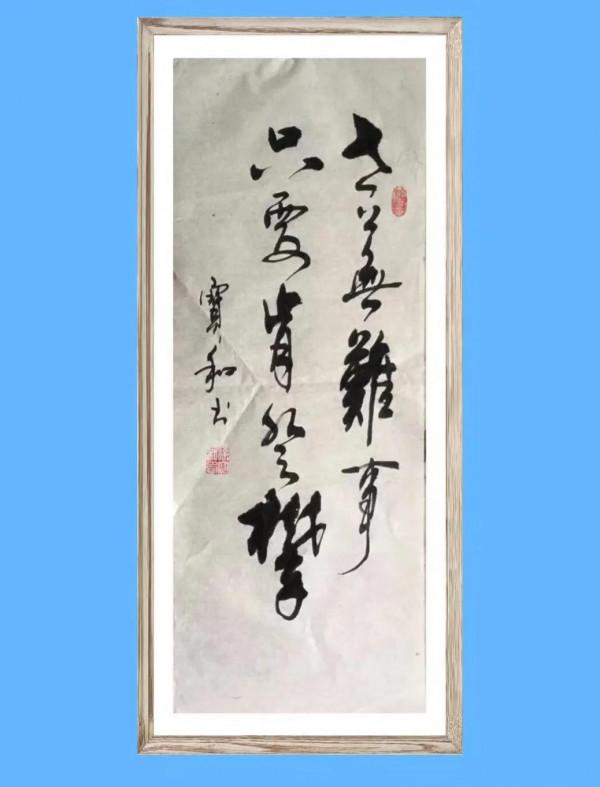 世上無難事
只要肯登攀
寶和书